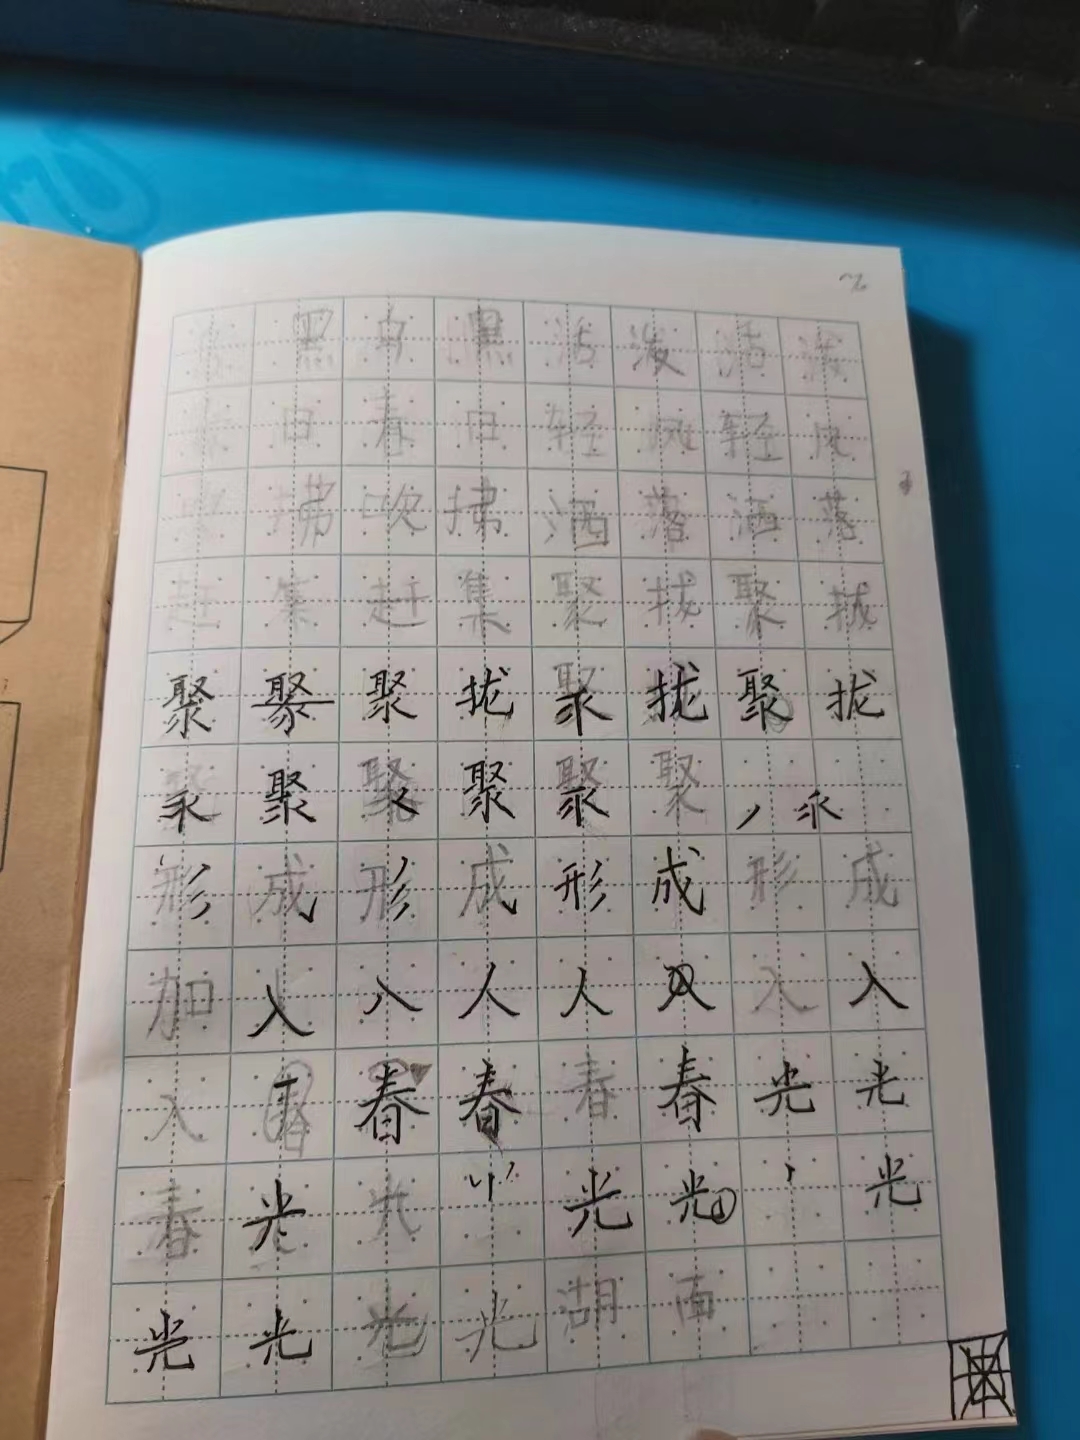 黑白黑活泼活泼
日春日轻风轻风
拂吹拂洒落洒落
赶集赶集聚拢聚拢
聚聚聚拢聚拢聚拢
聚聚聚聚聚聚
形成形成形成形成
加入入人人入入入
入春春春春春光光
春光光光光光
光光光光湖面